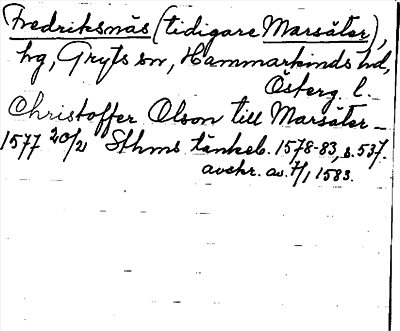 Fredriksnäs (tidigare Marsäter),
hg, Gryts sn, Hammarkinds hd,
Österg. l.
Christoffer Olson till Marsäter –
1577 20/2 Sthms tänkeb. 1578-83, s. 537.
avskr. av 7/1 1583.